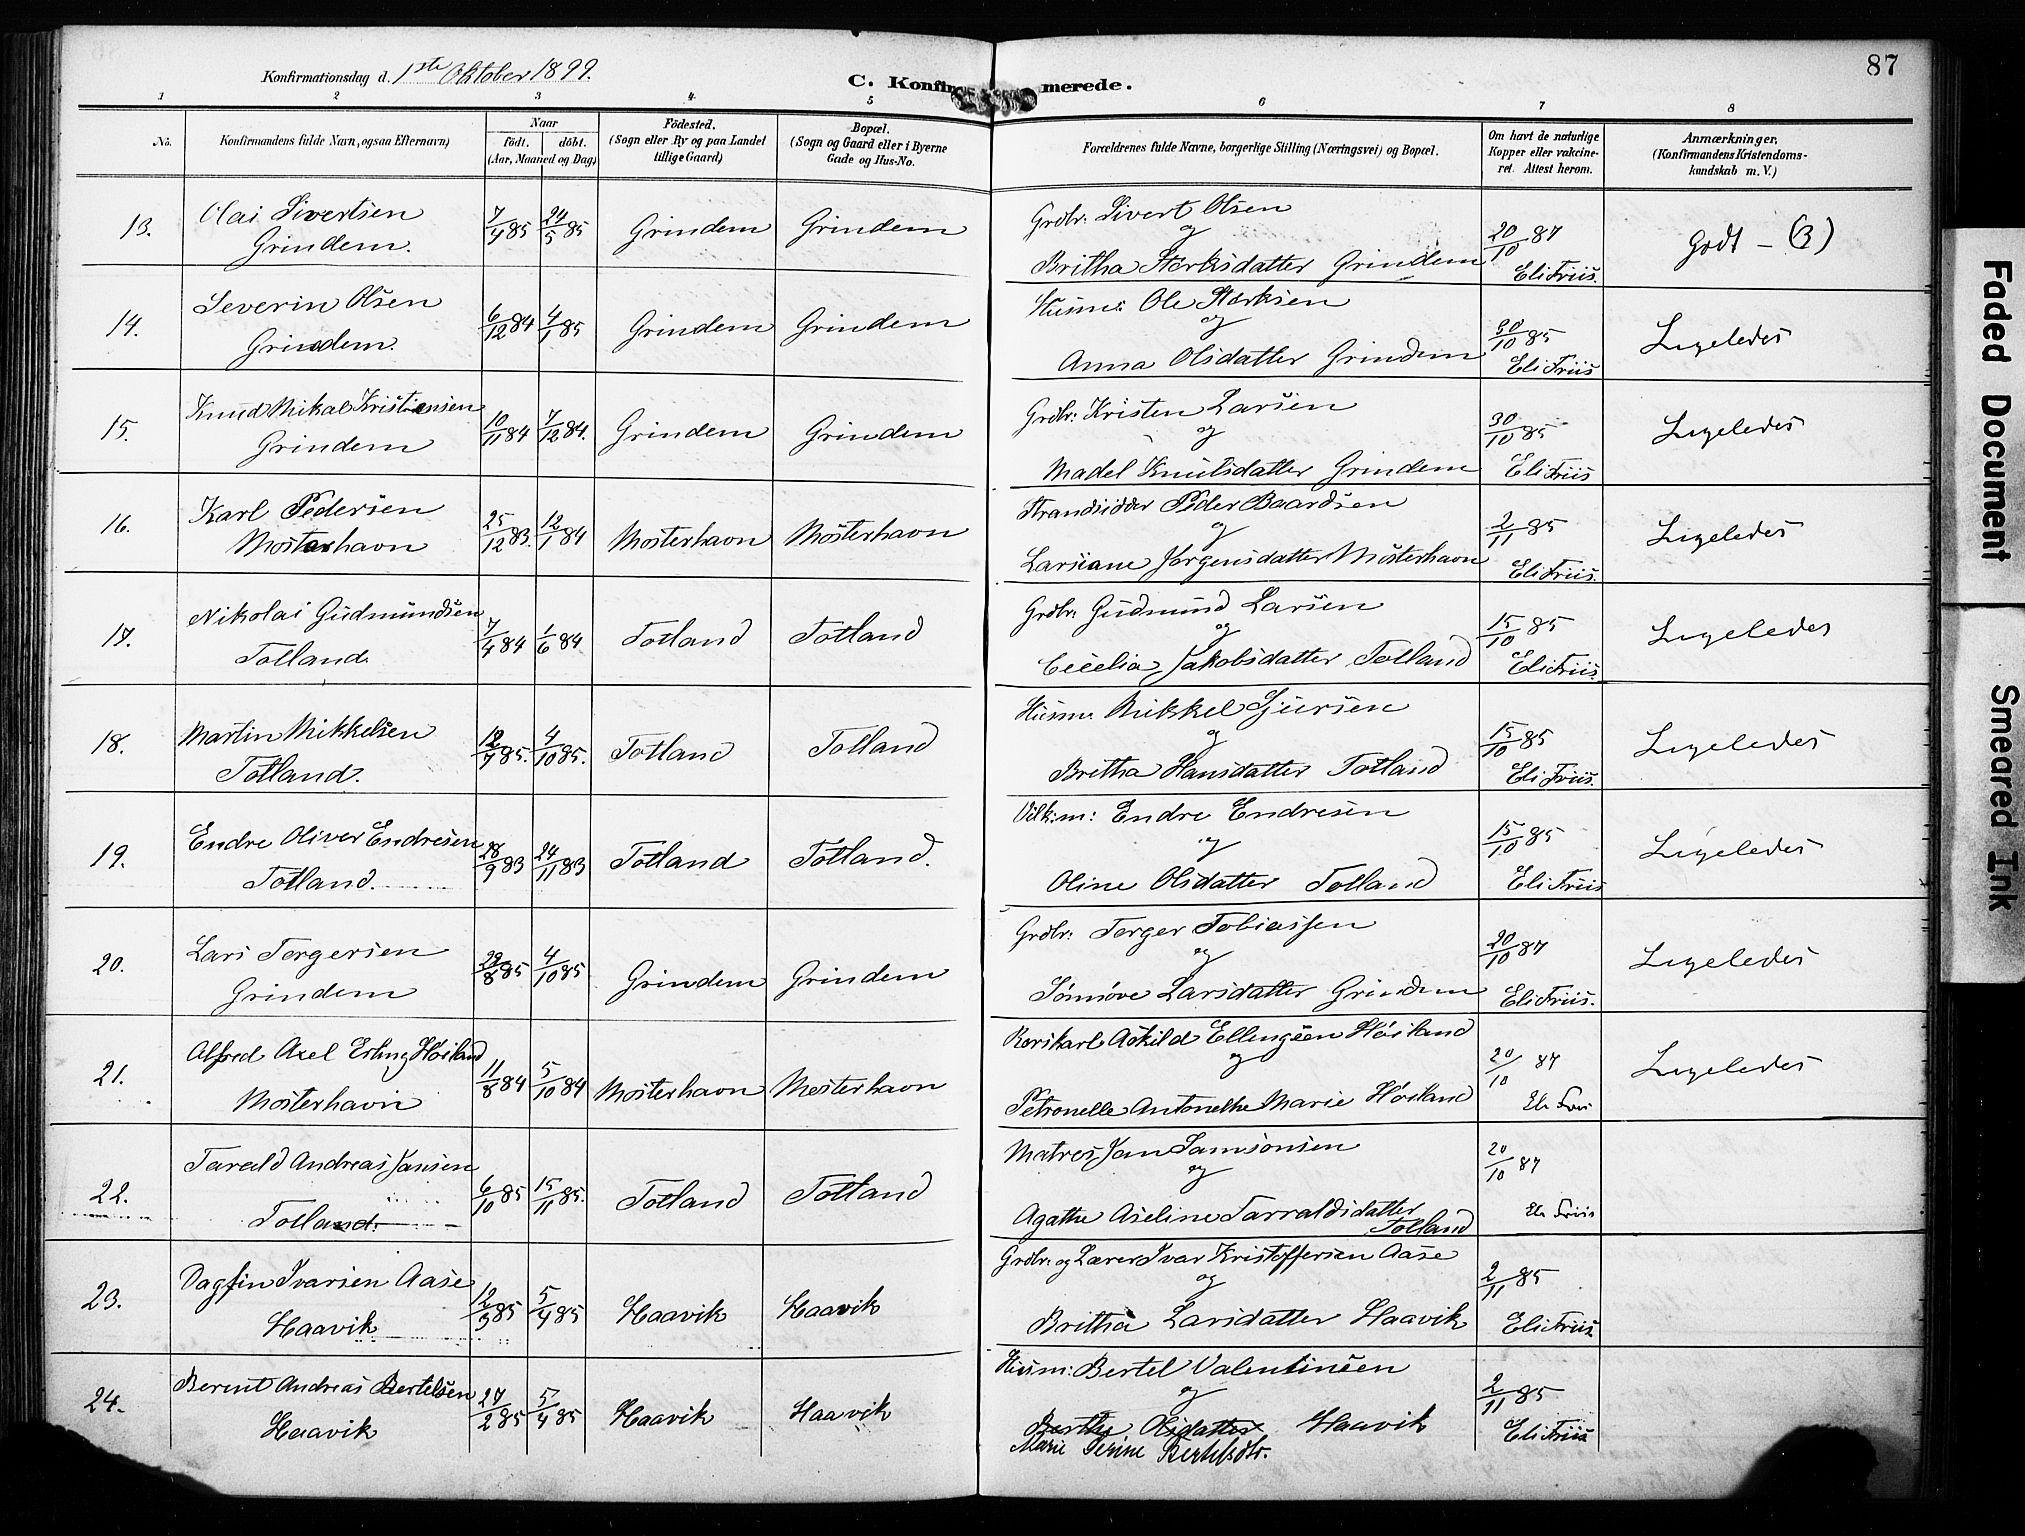 87
Konfirmationsdag d. 1ste Oktober 1899.
C. Konfir merede.
1 2 3 4 5 6 7 8
No.
Konfirmandens fulde Navn, ogsaa Efternavn)
Naar
födt. döbt.
(Aar, Maaned og Dag)
Födested.
(Sogn eller By og paa Landet
tillige Gaard)
Bopæl.
(Sogn og Gaard eller i Byerne
Gade og Hus-No.
Forældrenes fulde Navne, borgerlige Stilling (Næringsvei) og Bopæl.
Om havt de naturlige
Kopper eller vakcine-
ret. Attest herom.
Anmærkninger,
(Konfirmandens Kristendoms-
kundskab m. V.)
13. Olai Sivertsen Grindem. 7/4 85 24/5 85 Grindem Grindem
Grdbr: Sivert Olsen
og
Britha Størksdatter Grindem 20/10 87 Eli Friis. Godt - (3)
14. Severin Olsen Grindem. 6/12 84 4/1 85 Grindem Grindem
Husm: Ole Størksen
og
Anna Olsdatter Grindem 30/10 85 Eli Friis Ligeledes
15. Knud Mikal Kristiensen Grindem 10/11 84 7/12 84. Grindem Grindem
Grdbr: Kristen Larsen
og
Madel Knutsdatter Grindem 30/10 85 Eli Friis Ligeledes
16. Karl Pedersen Mosterhavn 25/12 83. 12/1 84 Mosterhavn Mosterhavn
Strandsidder Peder Baardsen
og
Larsiane Jørgensdatter Mosterhavn 2/11 85 Eli Friis. Ligeledes
17. Nikolai Gudmundsen Totland. 7/4 84 1/6 84 Totland Totland
Grdbr: Gudmund Larsen
og
Cecelia Jakobsdatter Totland 15/10 85 Eli Friis. Ligeledes
18. Martin Mikkelsen Totland. 85. 4/10 85. Totland Totland
Husm: Mikkel Sjursen
og
Britha Hansdatter Totland 15/10 85 Eli Friis. Ligeledes
19. Endre Oliver Endresen Totland. 28/9 83 24/11 83 Totland Totland.
Vilk:m: Endre Endresen
og
Oline Olsdatter Totland 15/10 85 Eli Friis Ligeledes
20. Lars Torgersen Grindem 85. 4/10 85 Grindem Grindem
Grdbr: Torger Tobiassen
og
Sønnøve Larsdatter Grindem 20/10 87 Eli Friis. Ligeledes
21. Alfred Axel Erling Høiland Mosterhavn 11/8 84 5/10 84 Mosterhavn Mosterhavn
Rorskarl Askild Ellingsen Høiland
og
Petronelle Antonethe Marie Høiland 20/10 87 Eli Friis Ligeledes
22. Tarald Andreas Jansen Totland. 6/10 85 15/11 85. Totland Totland
Matros Jan Samsonsen
og
Agathe Aseline Tarraldsdatter
Totland 20/10 87 Eli Friis
23. Dagfin Ivarsen Aase Haavik 12/3 85 5/4 85 Haavik Haavik
Grdbr: og Lærer Ivar Kristoffersen Aase
og
Britha Larsdatter Haavik 2/11 85 Eli Friis.
24. Berent Andreas Bertelsen Haavik 27/2 85 5/4 85 Haavik Haavik
Husm: Bertel Valentinsen
og
Berthe Olsdatter Haavik 2/11 85 Eli Friis
Marie Serine Bertelsdtr.
Faded Document
Smeared Ink